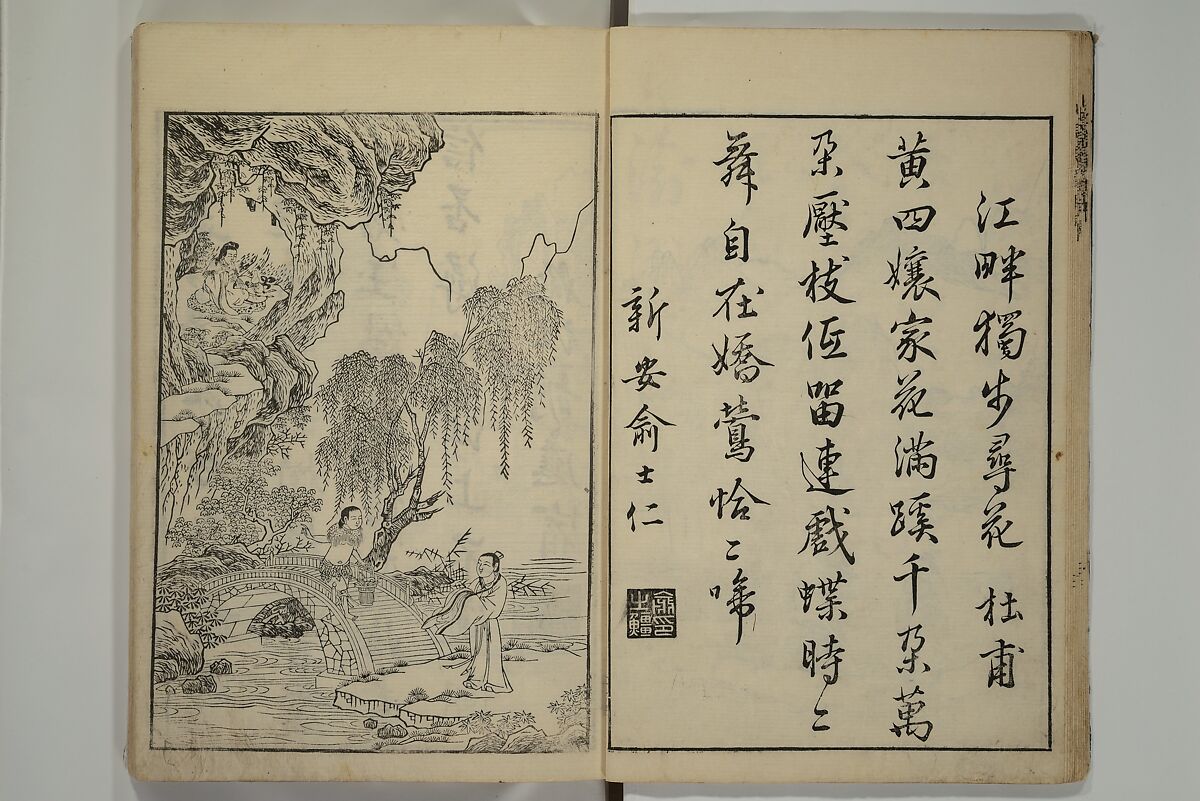 江畔獨步尋花 杜甫
黄四孃家花滿蹊千朶萬
朶壓枝低留連戲蝶時〻
舞自在嬌鶯恰〻啼
新安俞士仁